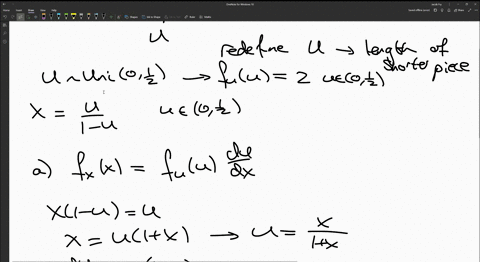 u
redefine u → length of
shorter piece
u ~ uni(0,½) → fu(u) = 2 u∈(0,½)
x = u/(1-u) u∈(0,½)
a) fx(x) = fu(u) du/dx
x(1-u) = u
x = u(1+x) → u = x/(1+x)